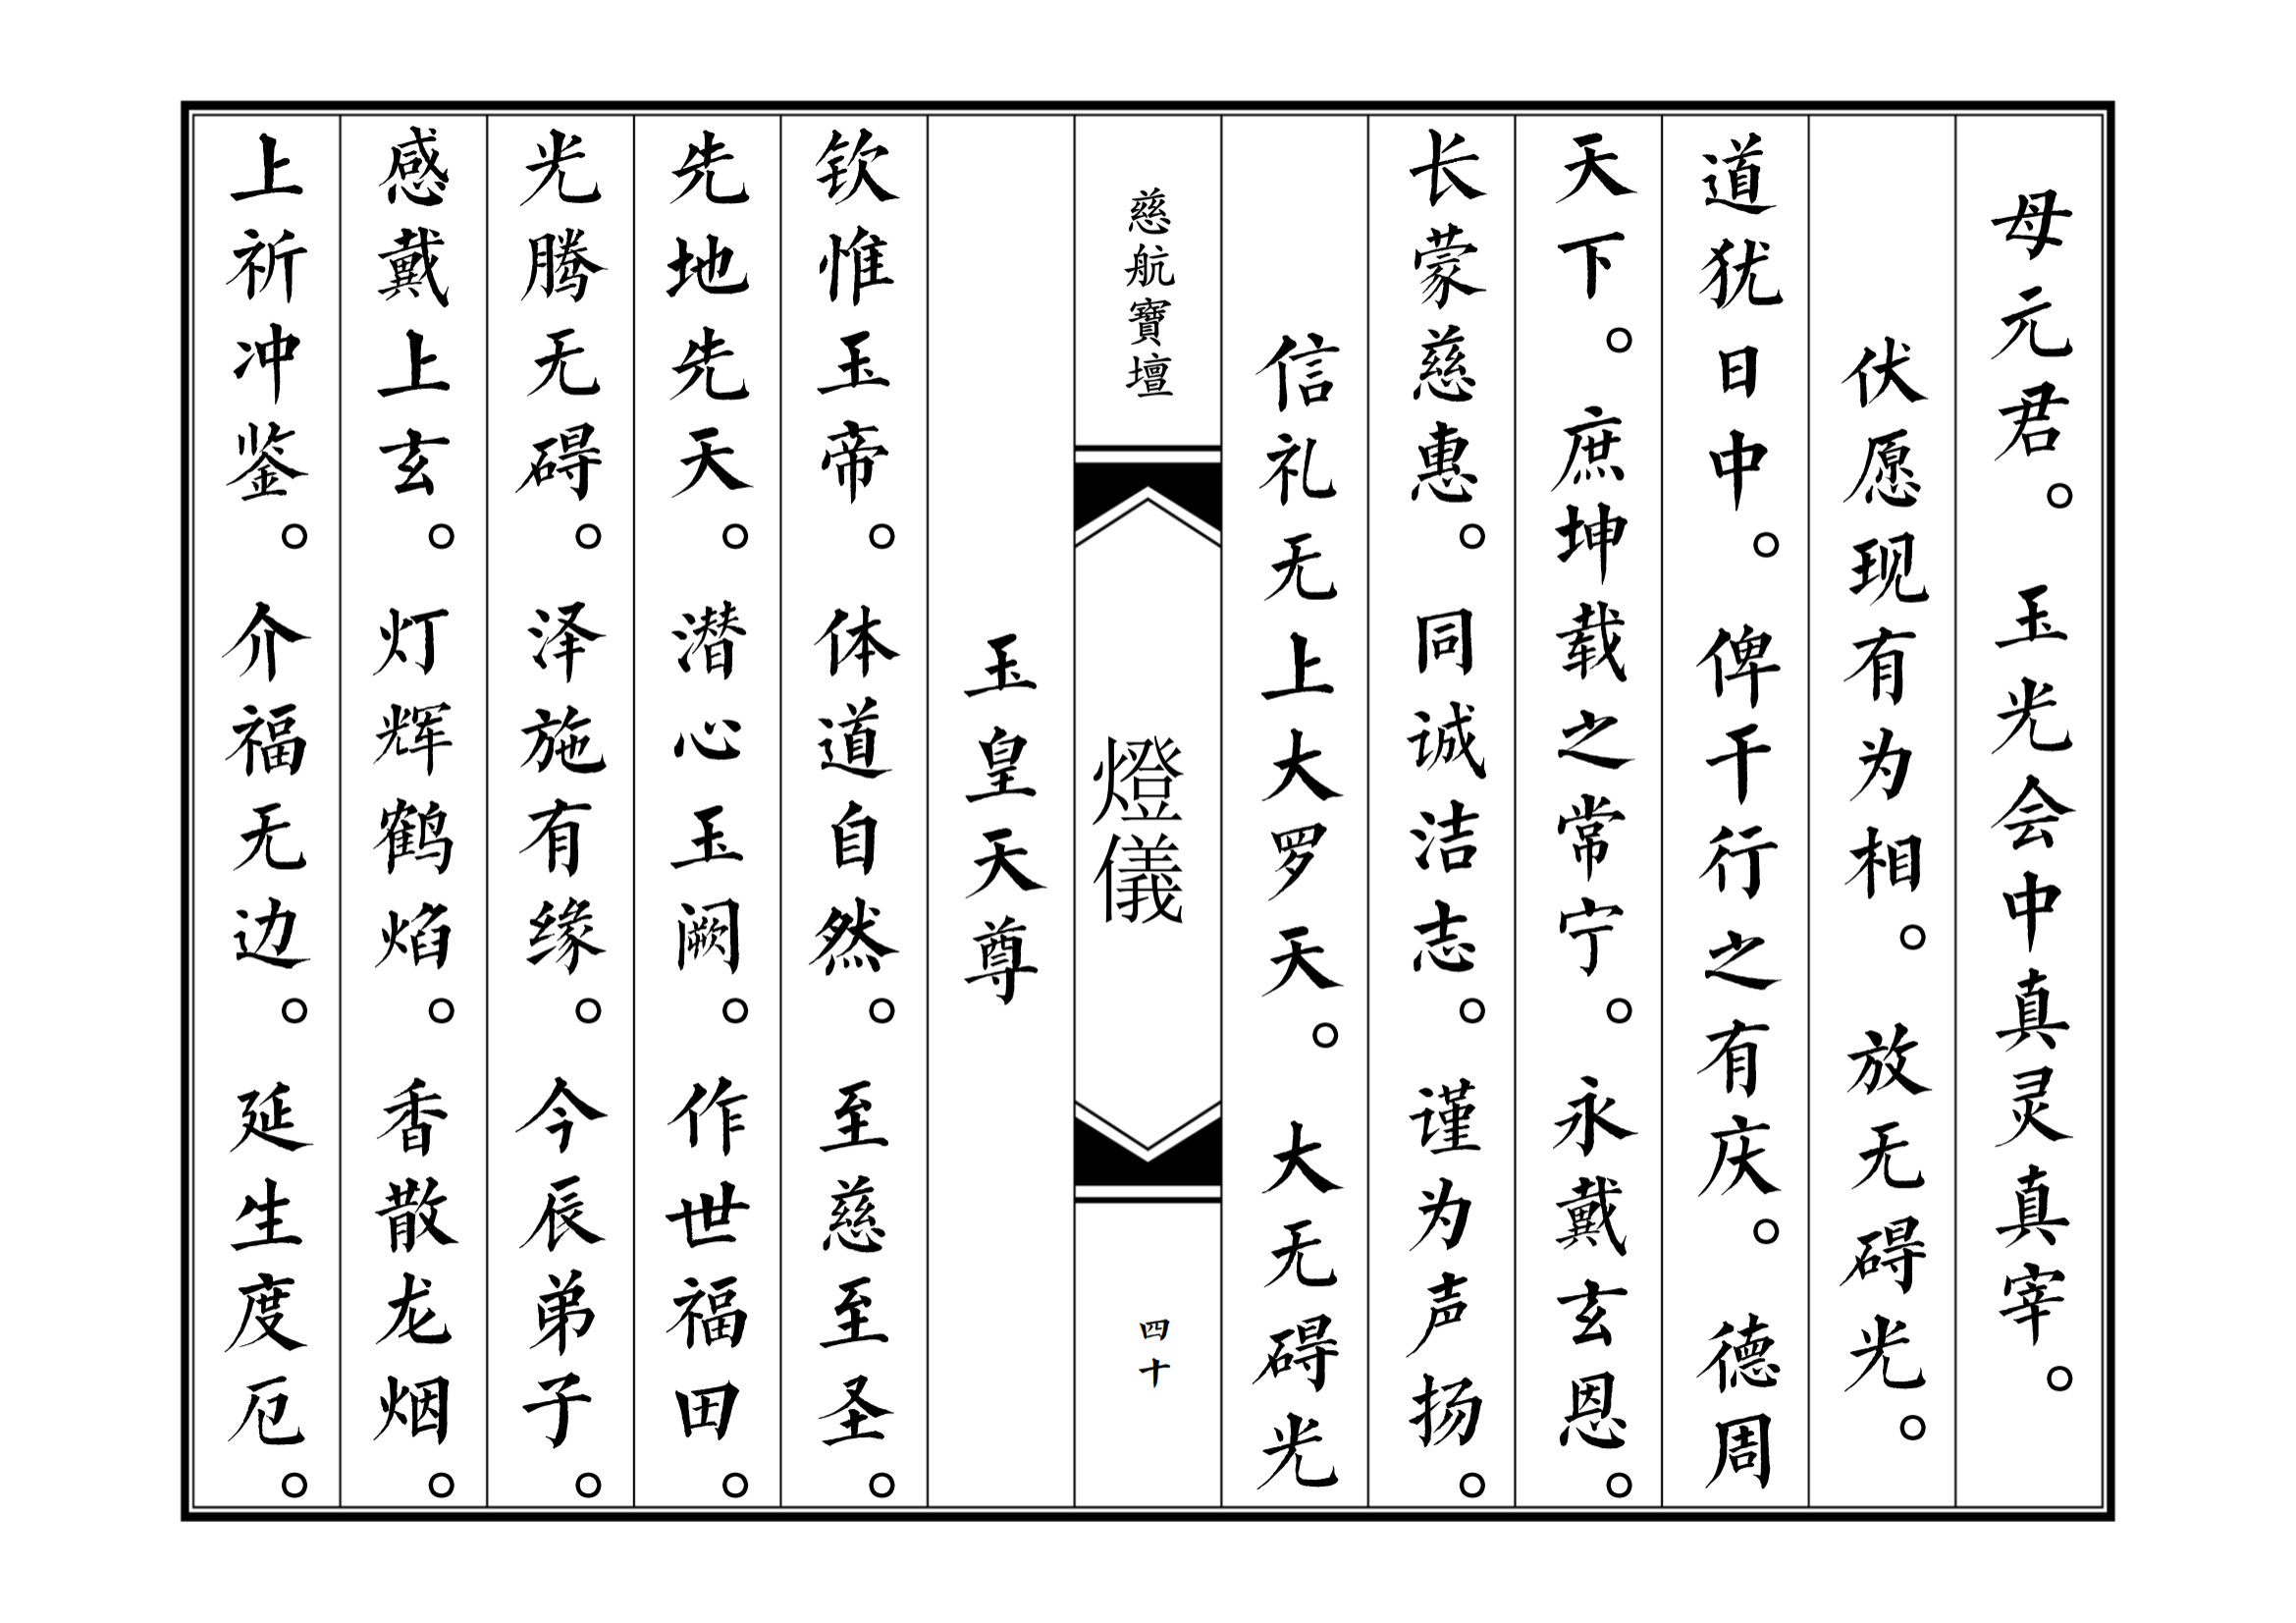 母元君。玉光会中真灵真宰。
伏愿现有为相。放无碍光。
道犹日中。俾干行之有庆。德周
天下。庶坤载之常宁。永戴玄恩。
长蒙慈惠。同诚洁志。谨为声扬。
信礼无上大罗天。大无碍光
慈航寶壇
燈儀
四十
玉皇天尊
钦惟玉帝。体道自然。至慈至圣。
先地先天。潜心玉阙。作世福田。
光腾无碍。泽施有缘。今辰弟子。
感戴上玄。灯辉鹤焰。香散龙烟。
上祈冲鉴。介福无边。延生度厄。